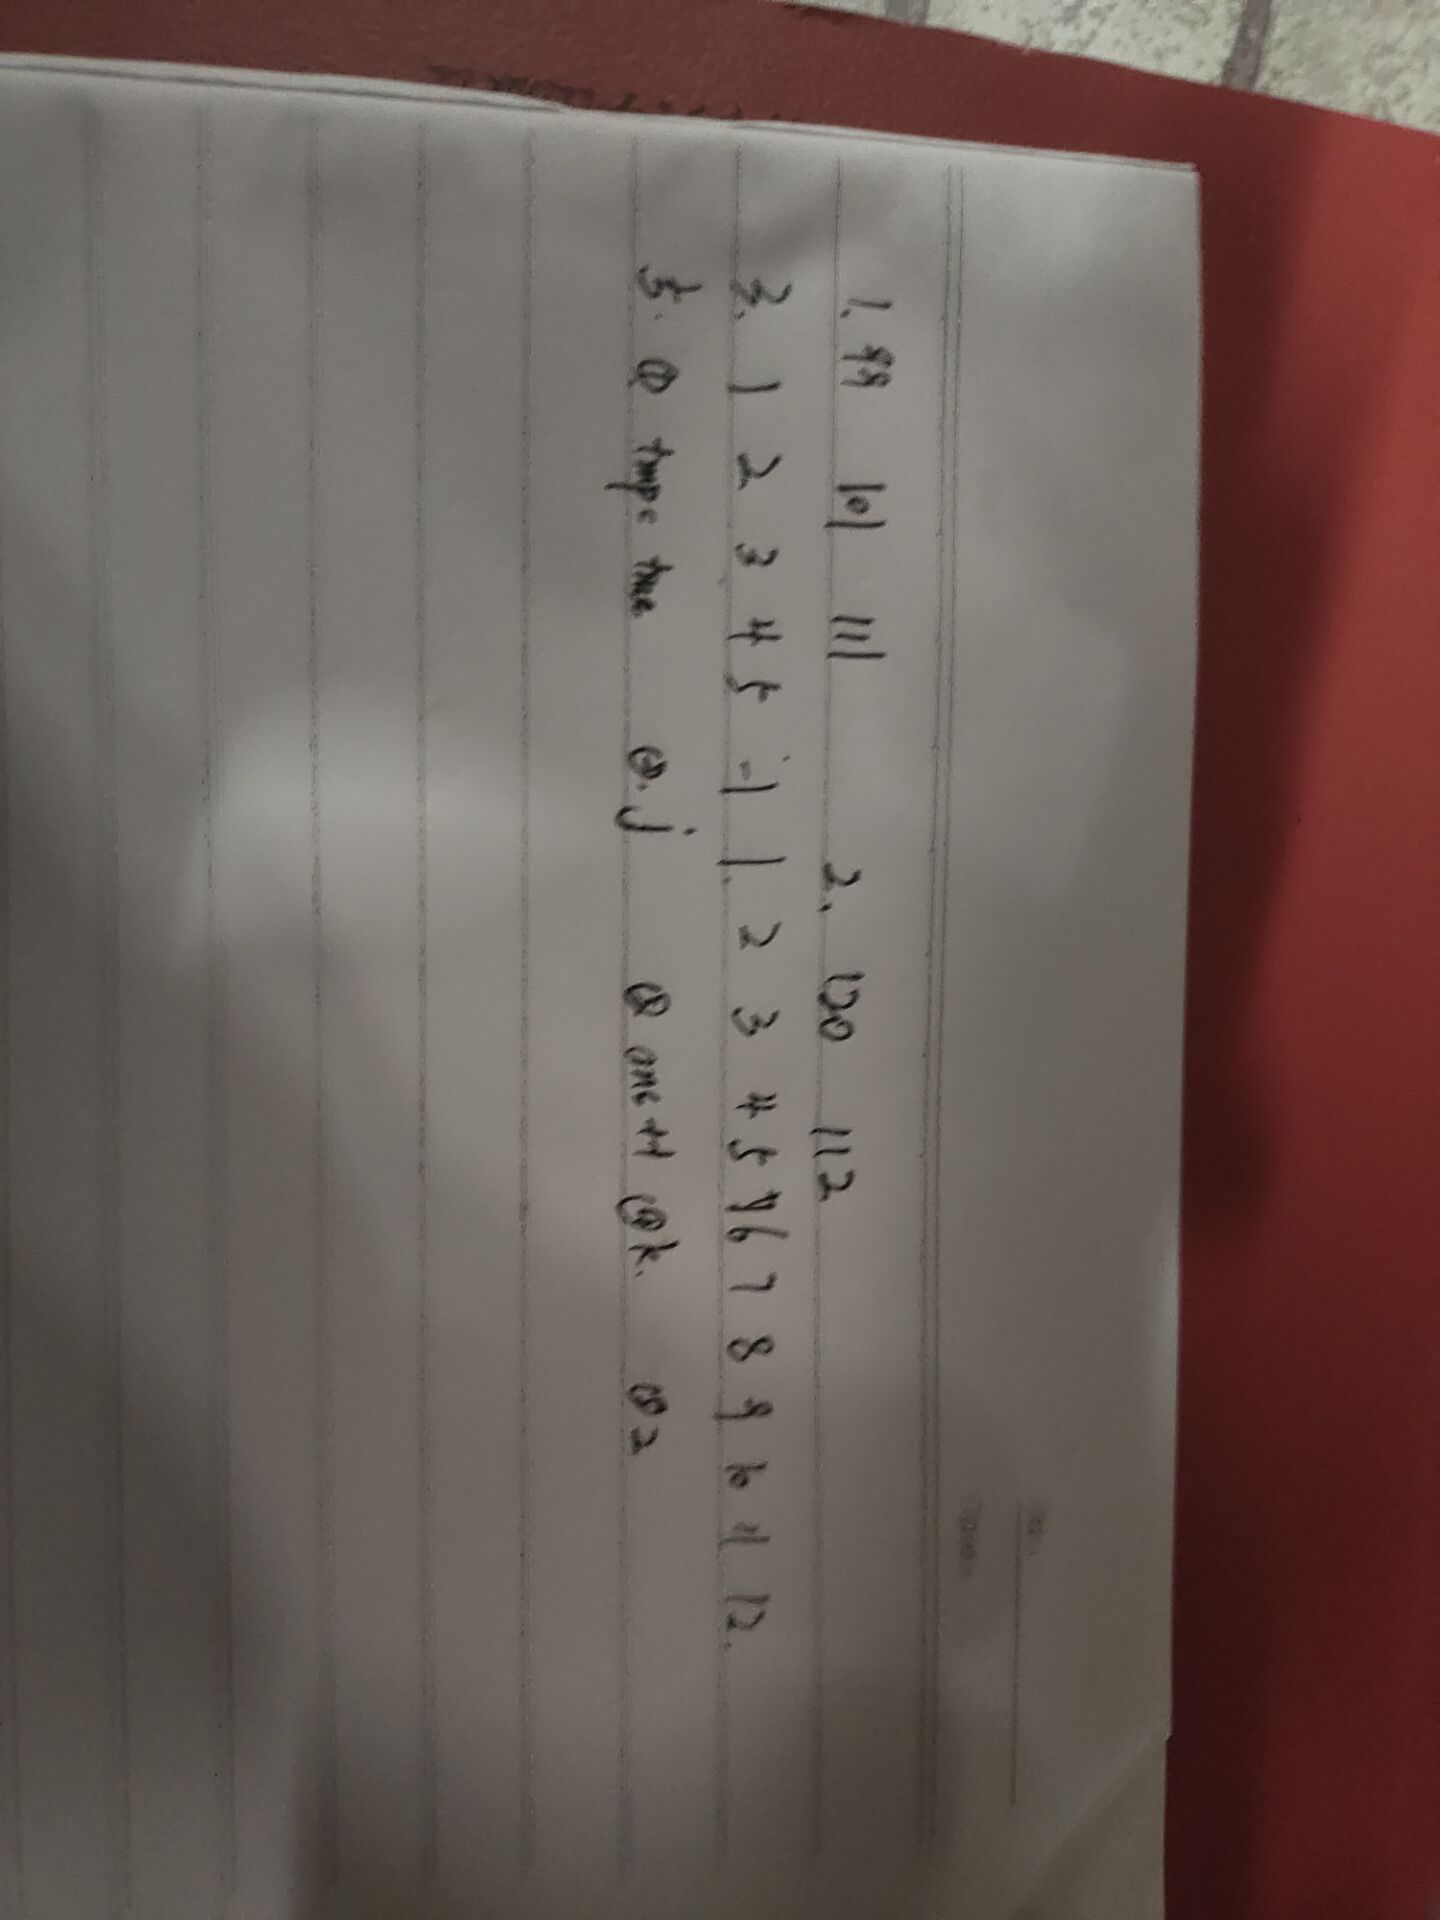 1. 99 101 111 2. 120 112
3. 1 2 3 4 5 -1 1. 2 3 4 5 6 7 8 9 10 11 12.
5. ① tmpe tme ②. j ③ one++ ④ k. ⑤ 2